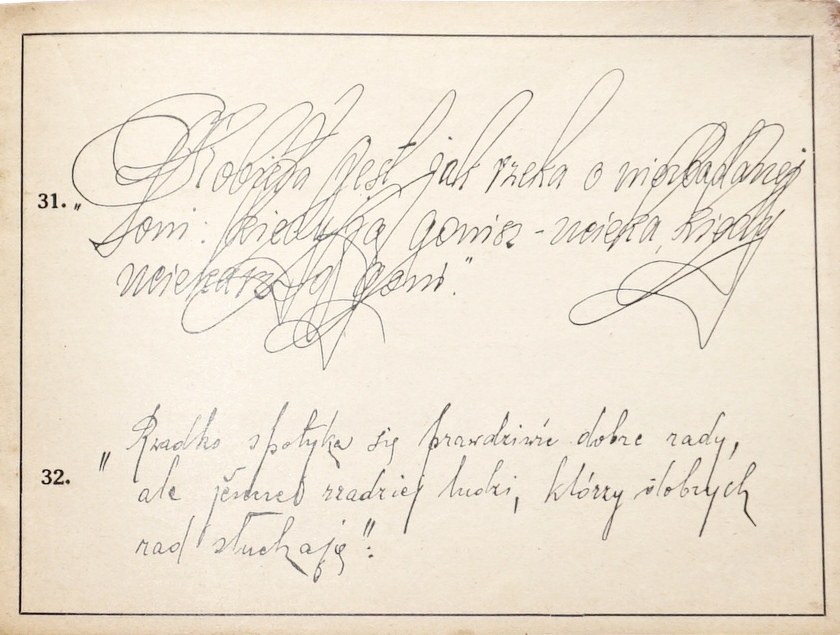 31. „Kobieta jest jak rzeka o niezbadanej
toni: kiedy ją gonisz - ucieka, kiedy
uciekasz goni."
32. "Rzadko spotyka się prawdziwie dobre rady,
ale rzadziej ludzi, którzy dobrych
rad słuchają".